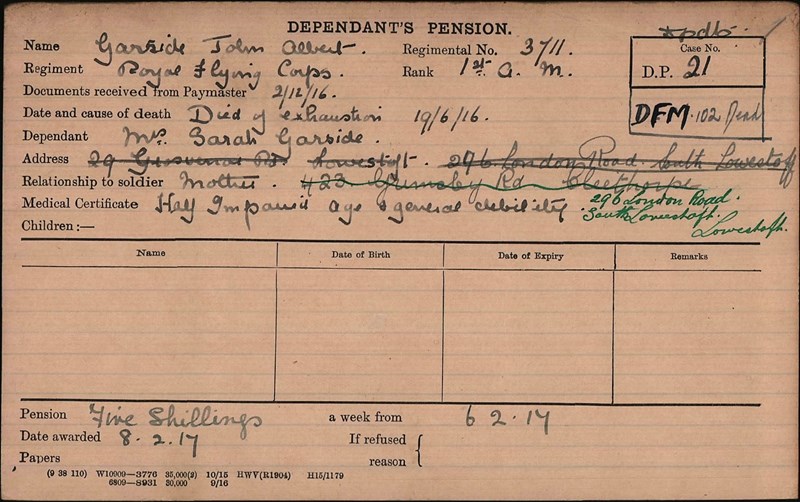 DEPENDANT'S PENSION.
Name Garside John Albert. Regimental No. 3711.
Case No.
Regiment Royal Flying Corps. Rank 1st A. M.
D.P. 21
Documents received from Paymaster 2/12/16.
Date and cause of death Died of exhaustion 19/6/16.
DFM. 102 Dead
Dependant Mrs. Sarah Garside.
Address 29 Grosvenor Rd. Lowestoft. 296 London Road. South Lowestoft
Relationship to soldier Mother. 423 Grimsby Rd Cleethorpe
Medical Certificate Half Impaired age & general debility
296 London Road.
South Lowestoft.
Lowestoft.
Children :—
Name Date of Birth Date of Expiry Remarks
Pension Five Shillings a week from 6 2. 17
Date awarded 8. 2. 17 If refused
Papers reason
(9 38 110) W10909—3776 35,000(2) 10/15 HWV(R1904) H15/1179
6809—8931 30,000 9/16